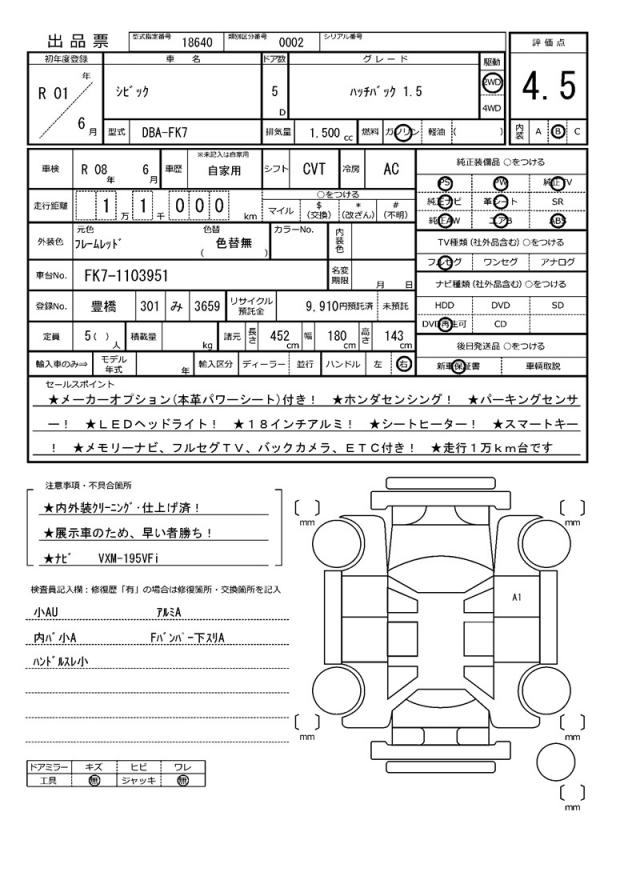 出品票 型式指定番号 18640 類別区分番号 0002 シリアル番号
評価点
4.5
初年度登録 車名 ドア数 グレード 駆動
R 01 年 6 月 シビック 5 D ハッチバック 1.5 2WD 4WD
型式 DBA-FK7 排気量 1,500 cc 燃料 ガソリン 軽油 ( ) 内装 A B C
車検 R 08 年 6 月 車歴 ※未記入は自家用 自家用 シフト CVT 冷房 AC
純正装備品 ○をつける
PS PW 純正TV
純正ナビ 革シート SR
純正AW エアB ABS
走行距離 1 万 1 千 0 0 0 km
○をつける
マイル $ (交換) * (改ざん) # (不明)
外装色 元色 フレームレッド 色替 ( 色替無 ) カラーNo. 内装色
TV種類 (社外品含む) ○をつける
フルセグ ワンセグ アナログ
車台No. FK7-1103951 名変期限 月 日
ナビ種類 (社外品含む) ○をつける
HDD DVD SD
DVD再生可 CD
登録No. 豊橋 301 み 3659 リサイクル預託金 9,910円預託済 未預託
定員 5 ( ) 人 積載量 kg 諸元 長さ 452 cm 幅 180 cm 高さ 143 cm
後日発送品 ○をつける
新車保証書 車輌取説
輸入車のみ⇒ モデル年式 年 輸入区分 ディーラー 並行 ハンドル 左 右
セールスポイント
★メーカーオプション(本革パワーシート)付き! ★ホンダセンシング! ★パーキングセンサ
ー! ★LEDヘッドライト! ★18インチアルミ! ★シートヒーター! ★スマートキー
! ★メモリーナビ、フルセグTV、バックカメラ、ETC付き! ★走行1万km台です
注意事項・不具合箇所
★内外装クリーニング・仕上げ済!
★展示車のため、早い者勝ち!
★ナビ VXM-195VFi
検査員記入欄:修復歴「有」の場合は修復箇所・交換箇所を記入
小AU アルミA
内バ小A Fバンパー下スリA
ハンドルスレ小
ドアミラー キズ ヒビ ワレ
工具 無 ジャッキ 無
mm mm
A1
mm mm
mm